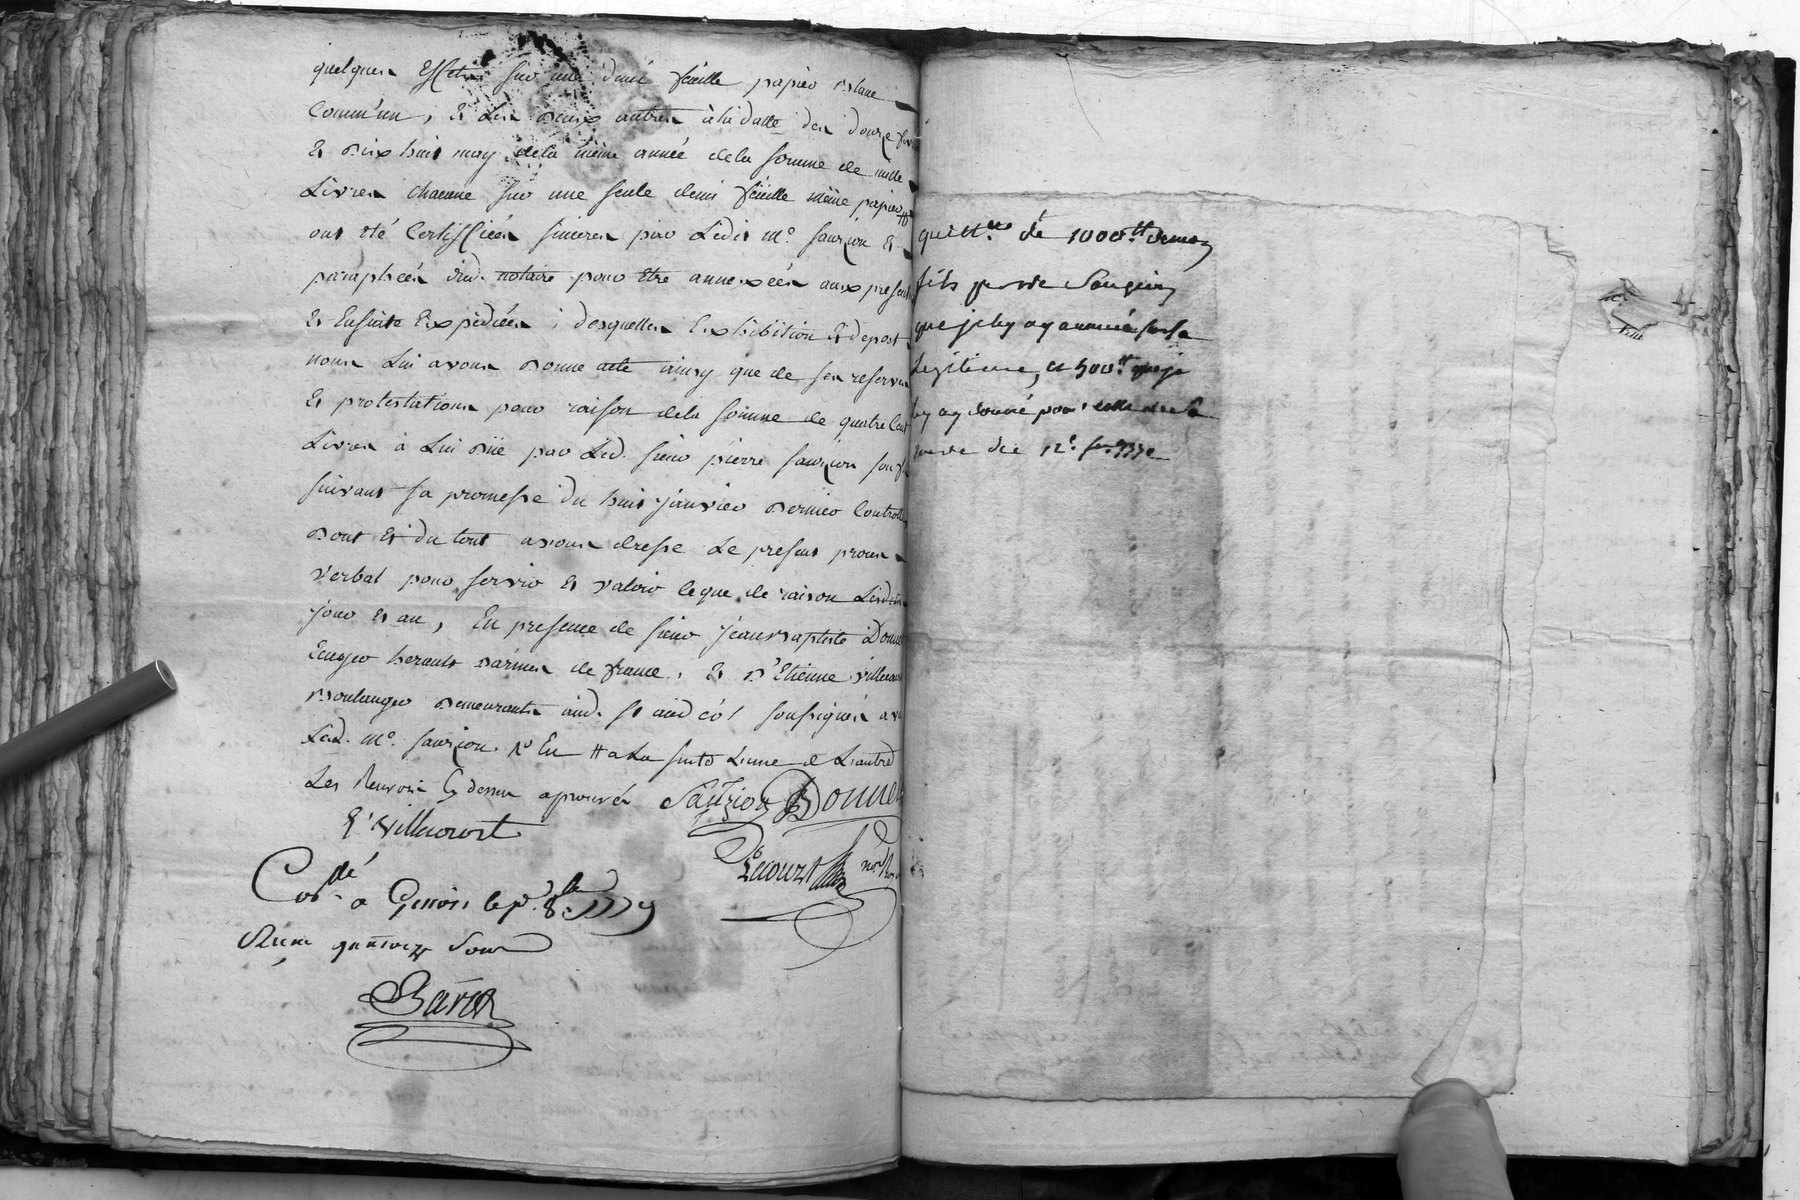 quelques Effets sur une demi feuille papier blanc
Commun, & Les deux autres à la datte des douze
& dix huit may de la même année de la somme de mille
Livres chacune sur une seule demi feuille même papier
ont été Certiffiées sinceres par Ledit Me. Sauzion &
paraphées dud. notaire pour Etre annexées aux presentes
& Ensuite Expédiées ; desquelles Exhibition & depost
nous Lui avons donné acte ainsy que de ses reserves
& protestations pour raison de la somme de quatre Cent
Livres à Lui düe par Led. sieur pierre Sauzion son
suivant sa promesse du huit janvier dernier Controllé
dont & du tout avons dressé Le present proces
verbal pour servir & valoir ce que de raison Lesdits
jour & an, En presence de sieur Jean Baptiste Donnet
Ecuyer herault d'armes de france, & d'Etienne villecourt
Boulanger demeurants aud. st andéol soussignés avec
Led. Me. Sauzion. # a La suite L'une de L'autre
Les Renvois Cy dessus aprouvés Sauzion Donnet
E' villecourt
Lecourt nore Royal
Conllé a Givors le pr. 8bre 1779
Reçu quatorze sous
Baret
quittce de 1000.tt de mon
fils pierre Sauzion
que je luy ay avancé sur sa
Legitime, et 500.tt que je
luy ay donné pour
12e.